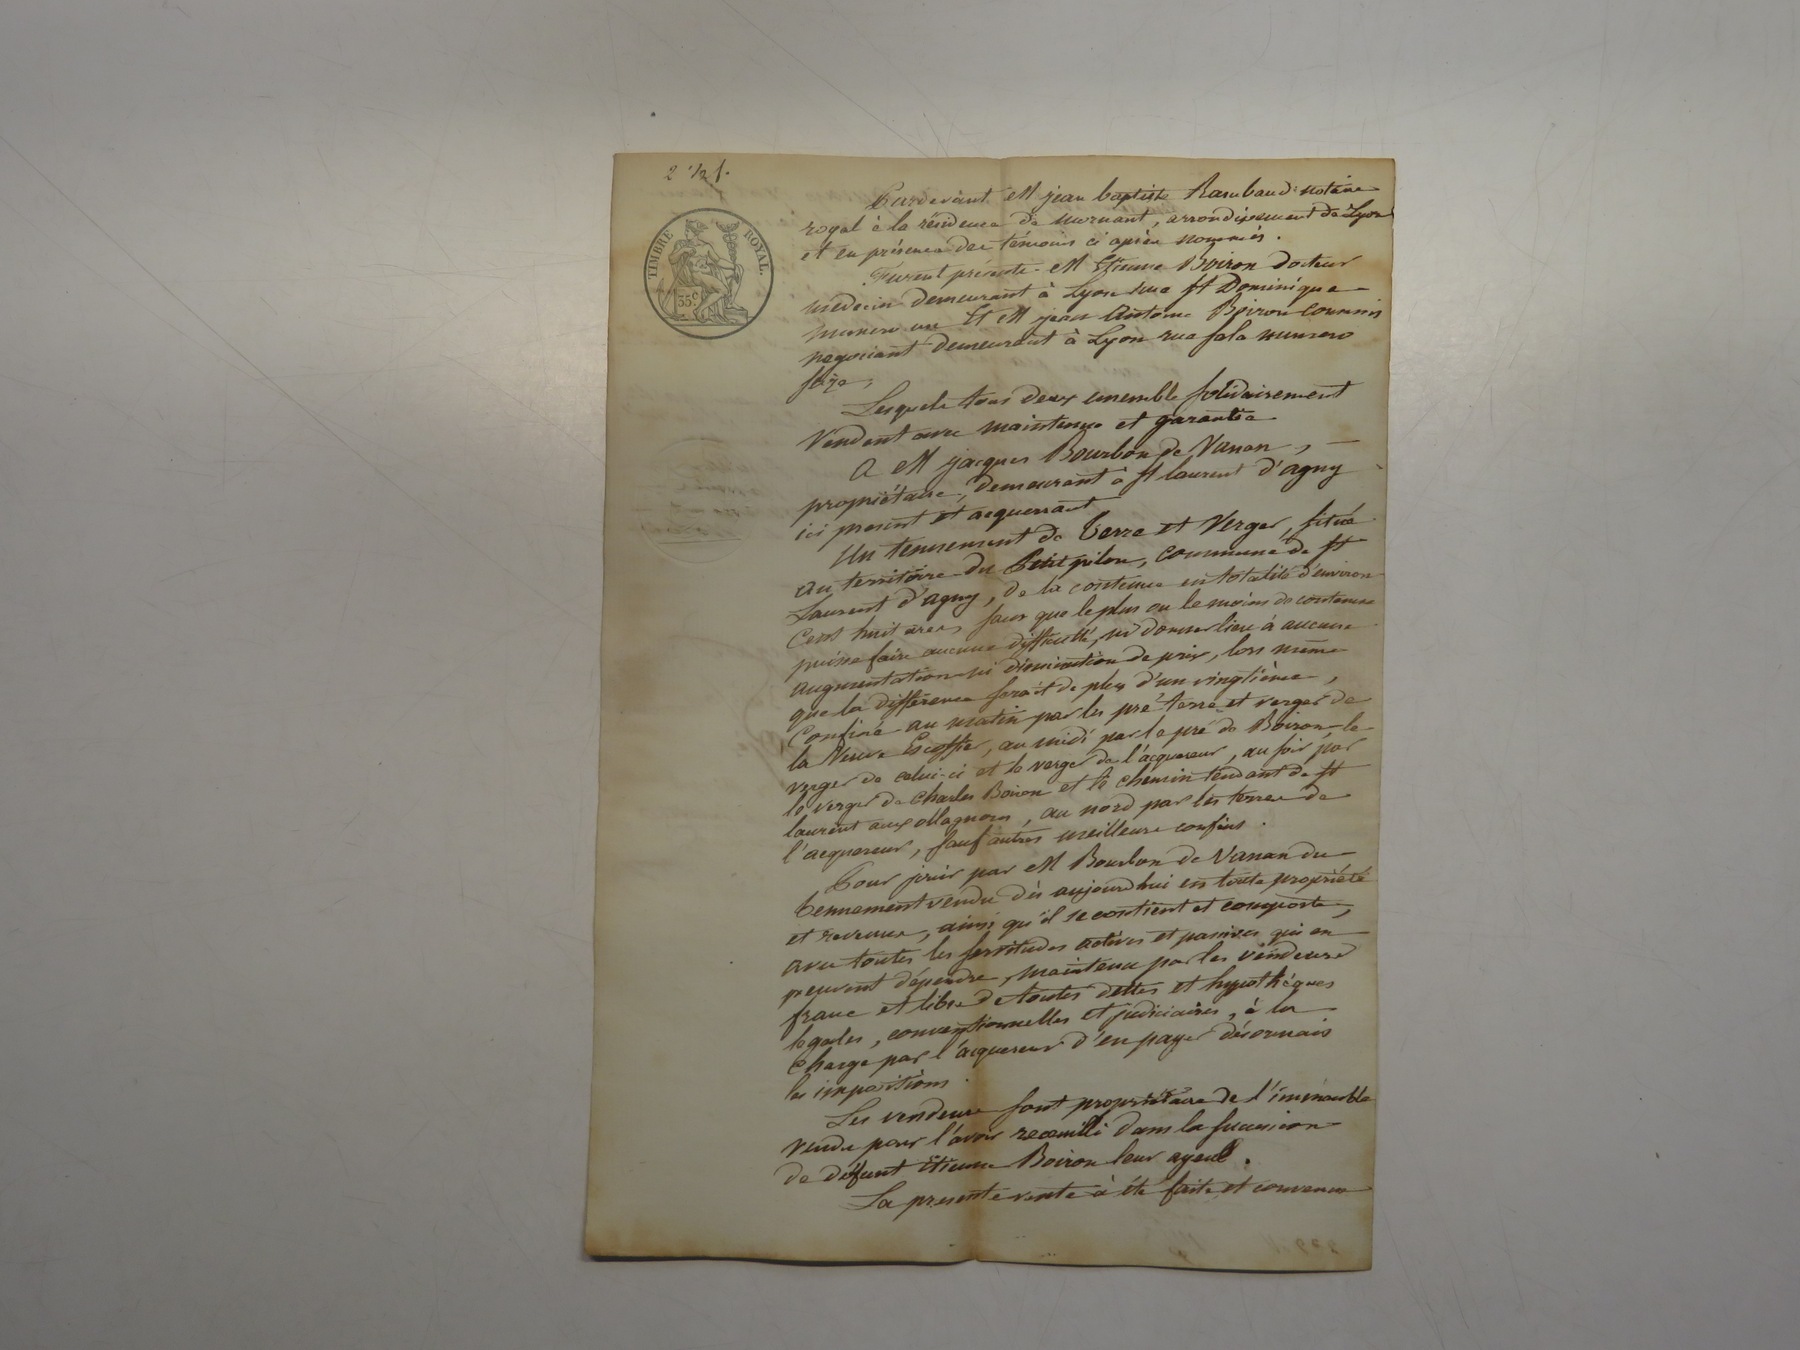 2
TIMBRE ROYAL.
35c
Pardevant M jean baptiste Rambaud notaire
royal à la résidence de mornant, arrondissement de Lyon
et en présence des témoins ci après nommés.
Furent présents M Etienne Boiron docteur
médecin demeurant à Lyon rue st Dominique
numero un Et M jean Antoine Boiron commis
negociant demeurant à Lyon rue sala numero
seize,
Lesquels tous deux ensemble solidairement
Vendent avec maintenue et garantie
A M jacques Bourbon de Vanan,
propriétaire, demeurant à st laurent d'agny
ici present et acquerrant
Un tennement de Terre et Verger, situé
au territoire du Petit pilon, commune de st
Laurent d'agny, de la contenue en totalité d'environ
Cent huit ares, sans que le plus ou le moins de contenue
puisse faire aucune difficulté, ni donner lieu à aucune
augmentation ni diminution de prix, lors même
que la différence serait de plus d'un vingtième,
Confiné au matin par les pré terre et verger de
la Veuve Escoffier, au midi par le pré de Boiron, le
verger de celui-ci et le verger de l'acquereur, au soir par
le verger de Charles Boiron et le chemin tendant de st
laurent aux ollagnons, au nord par les terres de
l'acquereur, sauf autres meilleurs confins.
Pour jouir par M Bourbon de Vanan du
tennement vendu dès aujourdhui en toute propriété
et revenus, ainsi qu'il se contient et comporte,
avec toutes les servitudes actives et passives qui en
peuvent dépendre, maintenu par les vendeurs
franc et libre de toutes dettes et hypothèques
légales, conventionnelles et judiciaires, à la
charge par l'acquereur d'en payer désormais
les impositions.
Les vendeurs sont propriétaires de l'immeuble
vendu pour l'avoir recueilli dans la succession
de défunt Etienne Boiron leur ayeul.
La presente vente à été faite et convenue